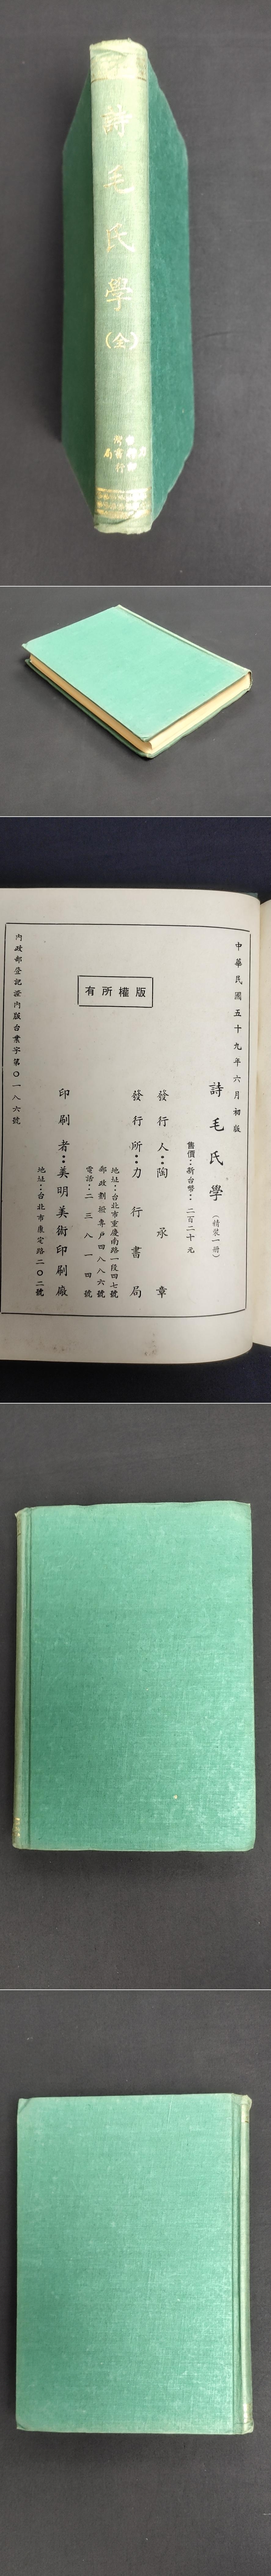 詩毛氏學
(全)
版權所有
中華民國五十九年六月初版
詩毛氏學(精裝一册)
售價:新台幣:二百二十元
發行人:陶承章
發行所:力行書局
地址:台北市重慶南路一段四七號
郵政劃撥專戶四八八六號
電話:二三八一四號
印刷者:美明美術印刷廠
地址:台北市康定路二〇二號
內政部登記證內版台業字第〇一八六號